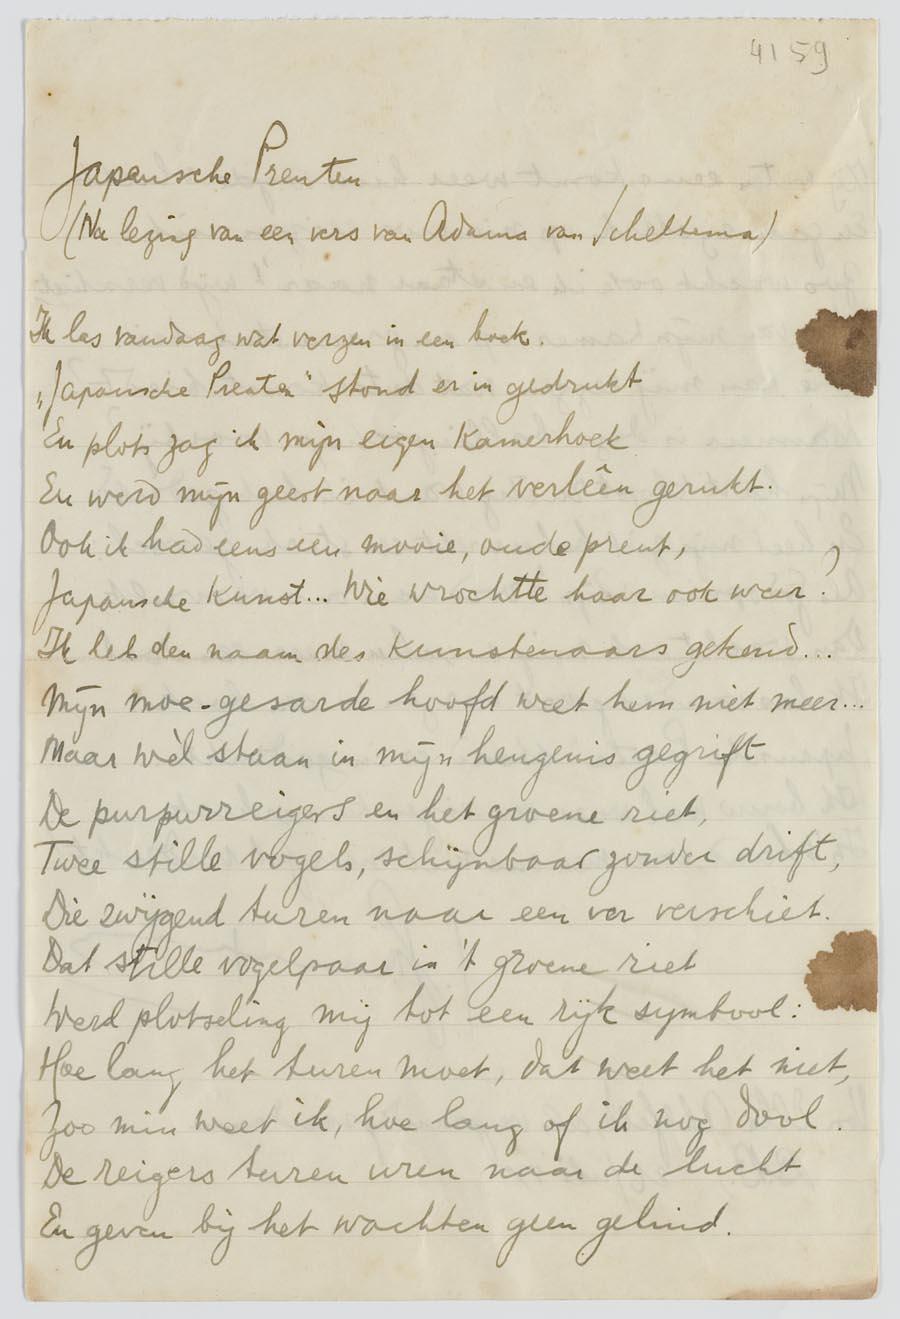 4159
Japansche Prenten
(Na lezing van een vers van Adama van Scheltema)
Ik las vandaag wat verzen in een boek.
„Japansche Prenten" stond er in gedrukt
En plots zag ik mijn eigen Kamerhoek
En werd mijn geest naar het verlêên gerukt.
Ook ik had eens een mooie, oude prent,
Japansche Kunst... Wie wrochtte haar ook weer?
Ik heb den naam des Kunstenaars gekend...
Mijn moe-gesarde hoofd weet hem niet meer...
Maar wèl staan in mijn heugenis gegrift
De purpurreigers en het groene riet,
Twee stille vogels, schijnbaar zonder drift,
Die zwijgend turen naar een ver verschiet.
Dat stille vogelpaar in 't groene riet
Werd plotseling mij tot een rijk symbool:
Hoe lang het turen moet, dat weet het niet,
Zoo min weet ik, hoe lang of ik nog dool.
De reigers turen uren naar de lucht
En geven bij het wachten geen geluid.